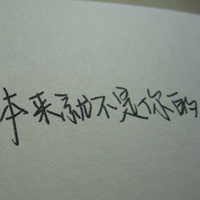 本来就不是你的